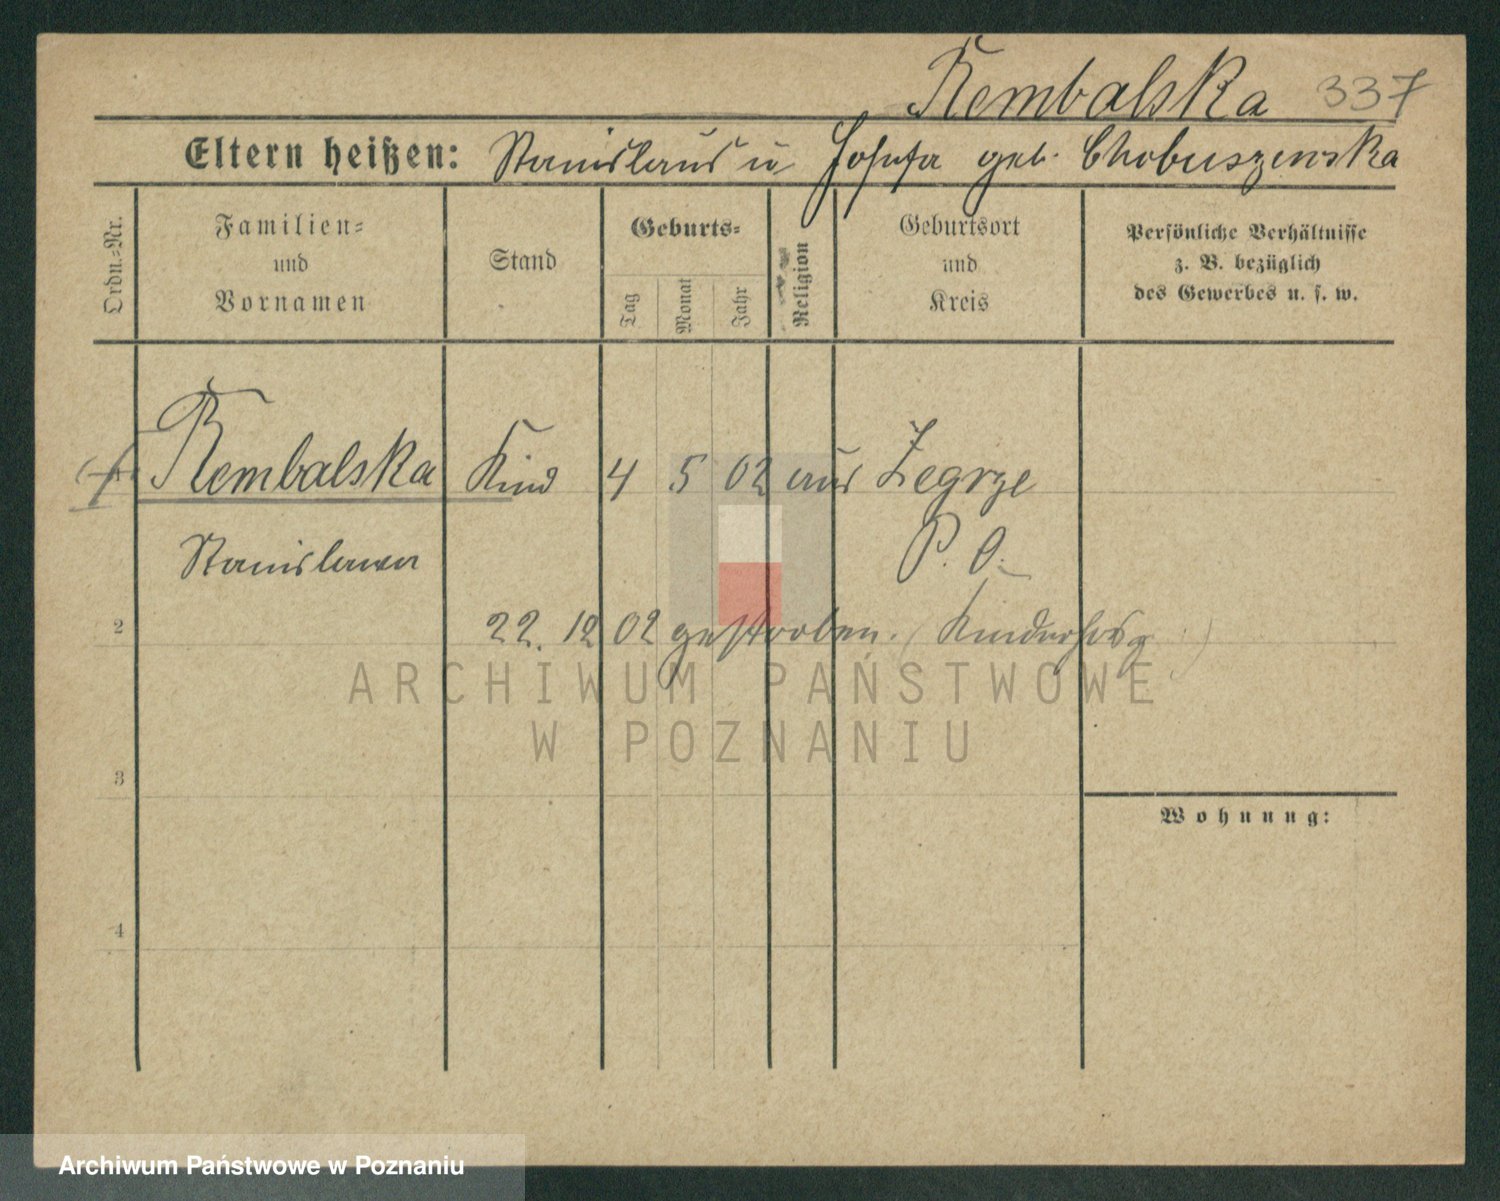 Rembalska 337
Eltern heißen: Stanislaus u. Josefa geb. Chobuszewska
Ordn.-Nr.
Familien-
und
Vornamen
Stand
Geburts-
Tag
Monat
Jahr
Religion
Geburtsort
und
Kreis
Persönliche Verhältnisse
z. B. bezüglich
des Gewerbes u. s. w.
Rembalska Kind 4 5 02 aus Zegrze
Stanislawa P. O.
2 22. 12 02 gestorben. (Kinderhosp.)
3
Wohnung:
4
ARCHIWUM PAŃSTWOWE
W POZNANIU
Archiwum Państwowe w Poznaniu